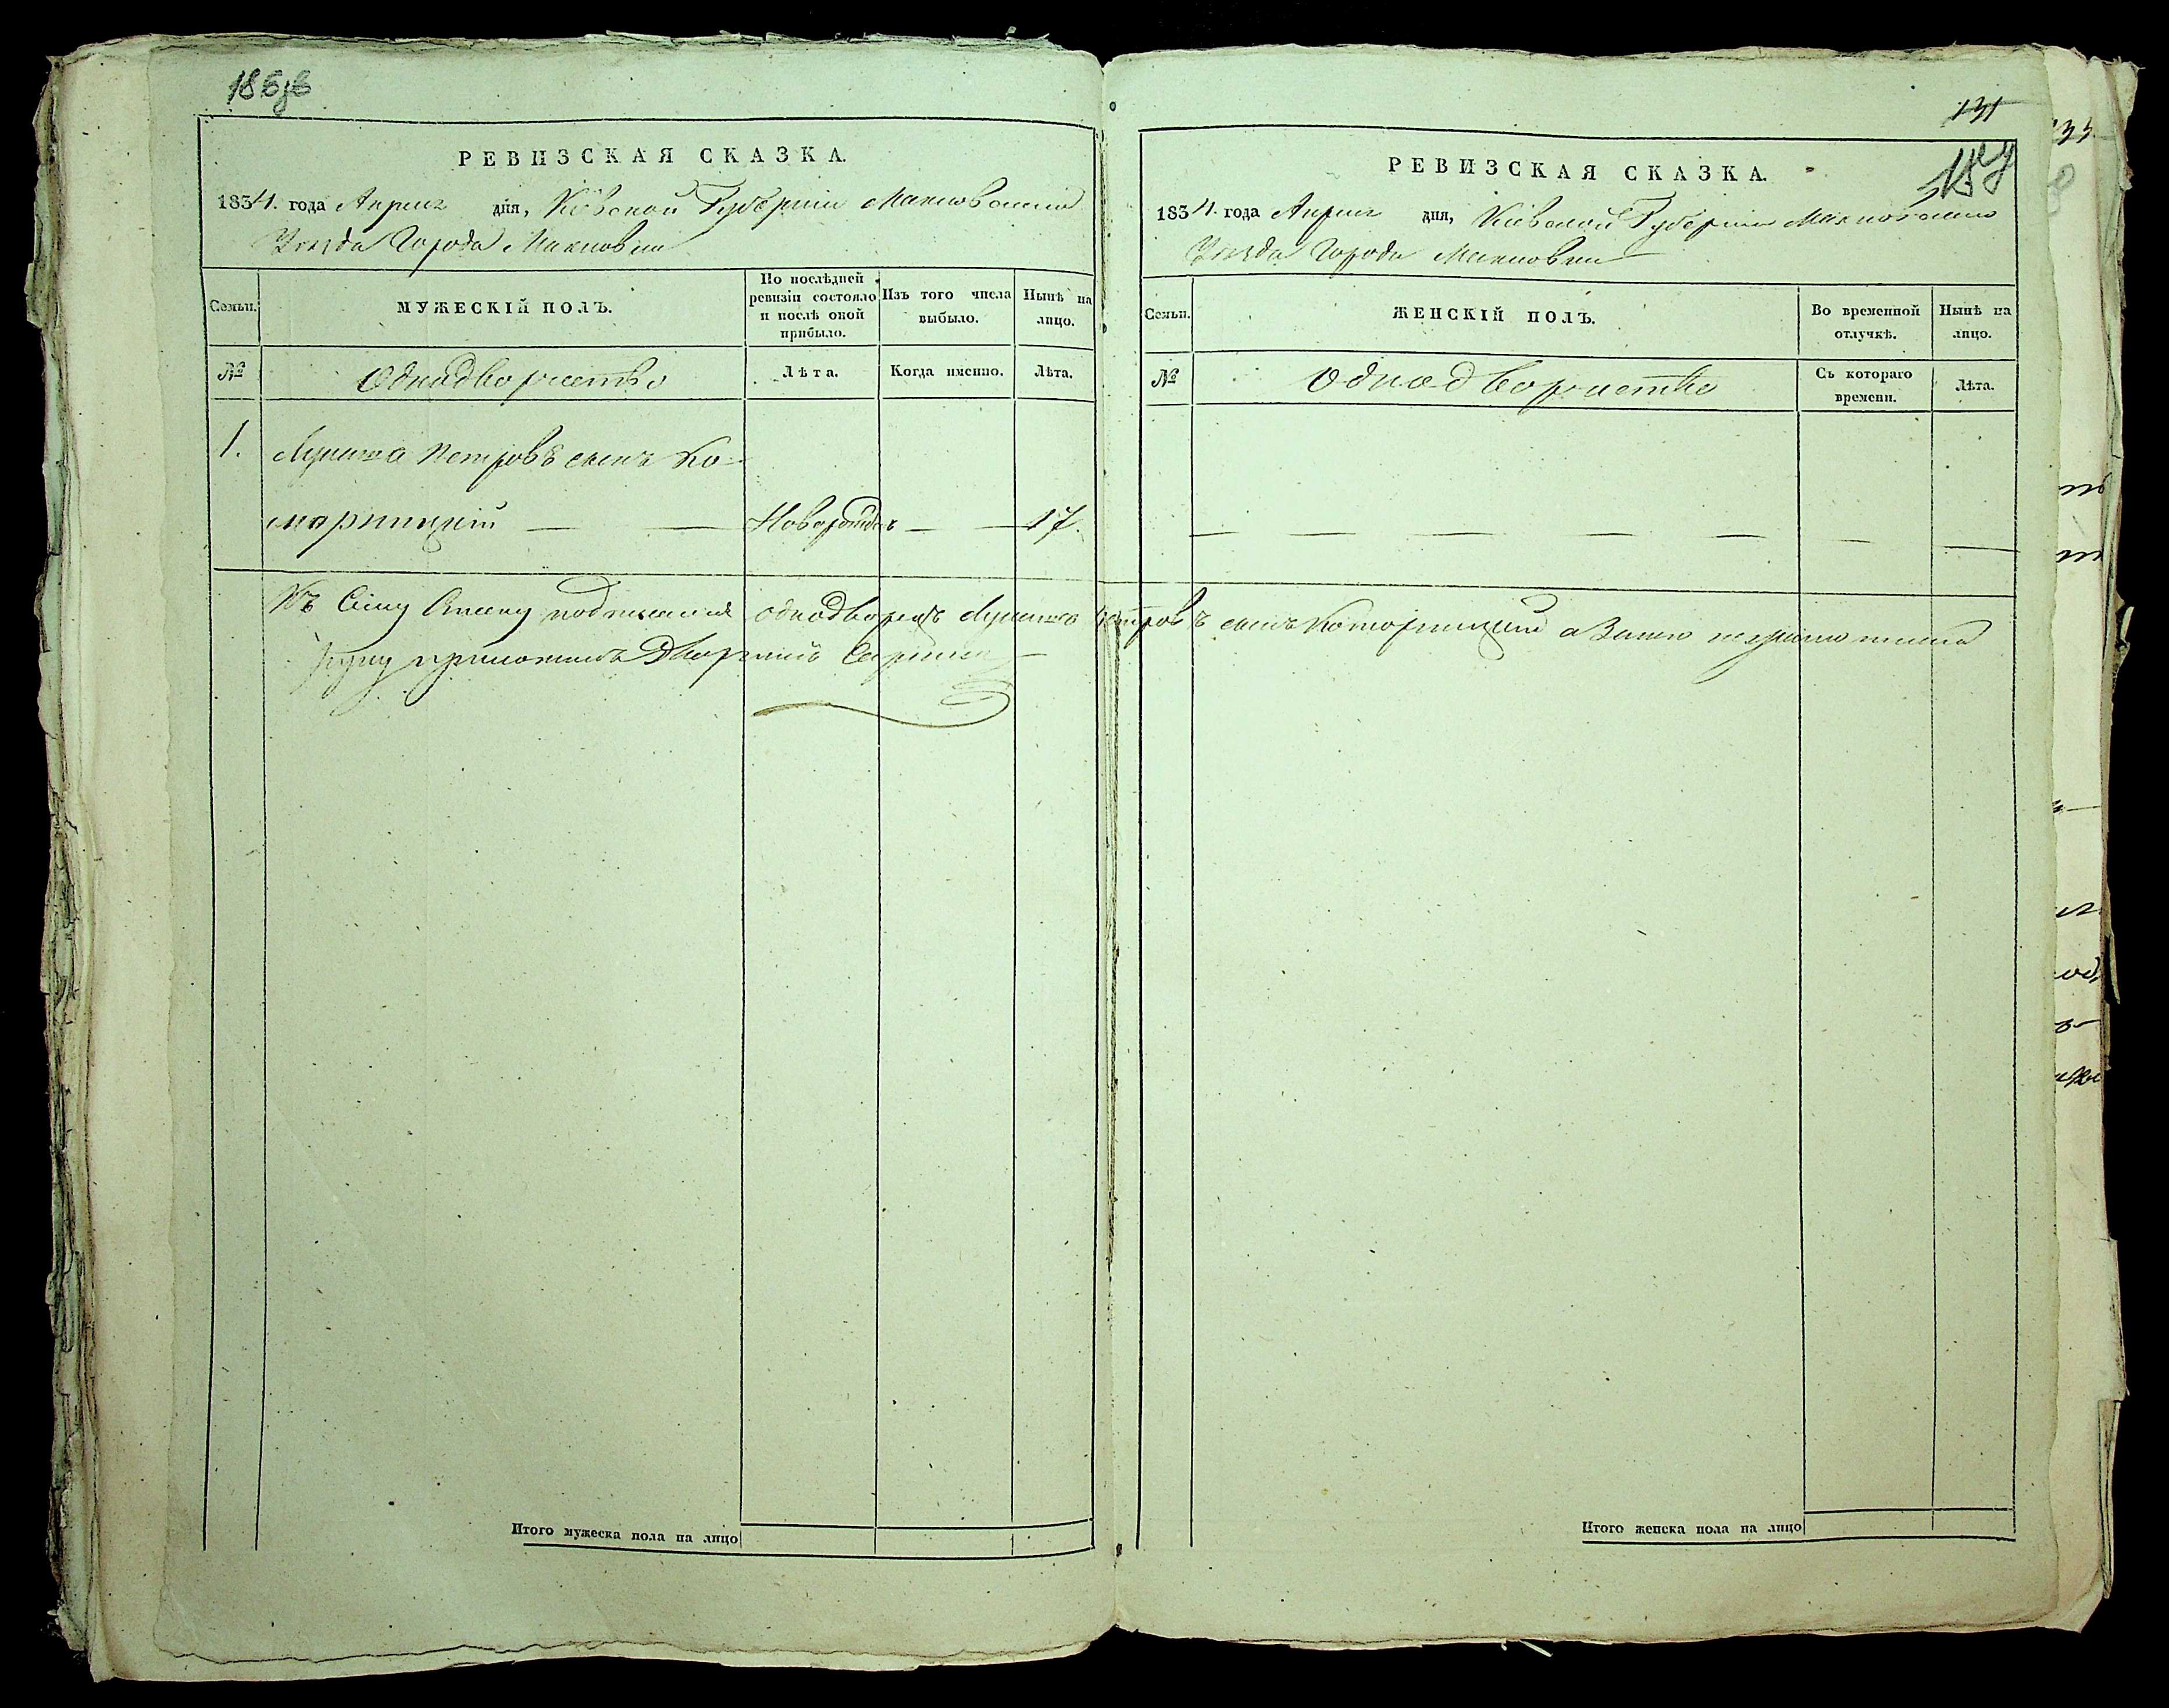 186зв
РЕВИЗСКАЯ СКАЗКА.
1834. года Апреля дня, Кіевской Губерніи Махновскаго
Уезда Города Махновки
Семьи.
МУЖЕСКІЙ ПОЛЪ.
По послѣдней ревизіи состояло и послѣ оной прибыло.
Изъ того числа выбыло.
Нынѣ на лицо.
№
Однодворчество
Лѣта.
Когда именно.
Лѣта.
1.
Петровъ сынъ Ко-
марницкій — — Новорожден — — 17.
Къ Сему однодворецъ Петровъ сынъ Комарницкий а неграмотнаго
Руку приложилъ Дворянинъ
Итого мужеска пола на лицо
131
187
РЕВИЗСКАЯ СКАЗКА.
1834. года Апреля дня, Кіевской Губерніи Махновскаго
Уезда Города Махновки
Семьи.
ЖЕНСКІЙ ПОЛЪ.
Во временной отлучкѣ.
Нынѣ на лицо.
№
Однодворчество
Съ котораго времени.
Лѣта.
Итого женска пола на лицо